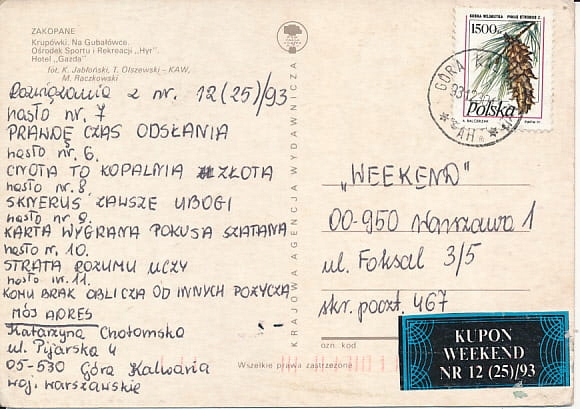 ZAKOPANE
Krupówki. Na Gubałówce.
Ośrodek Sportu i Rekreacji „Hyr".
Hotel „Gazda"
fot. K. Jabłoński, T. Olszewski - KAW,
M. Raczkowski
Rozwiązania z nr. 12(25)/93
hasło nr. 7
PRAWDĘ CZAS ODSŁANIA
hasło nr. 6.
CNOTA TO KOPALNIA ZŁOTA
hasło nr. 8
SKNERUS ZAWSZE UBOGI
hasło nr. 9.
KARTA WYGRANA POKUSA SZATANA
hasło nr. 10.
STRATA ROZUMU UCZY
hasło nr. 11.
KOMU BRAK OBLICZA OD INNYCH POŻYCZA
MÓJ ADRES
Katarzyna Chotomska
ul. Pijarska 4
05-530 Góra Kalwaria
woj. warszawskie
KRAJOWA AGENCJA WYDAWNICZA
Wszelkie prawa zastrzeżone
SOSNA WEJMUTKA PINUS STROBUS L.
1500 zł
Polska
GÓRA KAL
„WEEKEND"
00-950 Warszawa 1
ul. Foksal 3/5
skr. poczt. 467
ozn. kod
KUPON
WEEKEND
NR 12 (25)/93